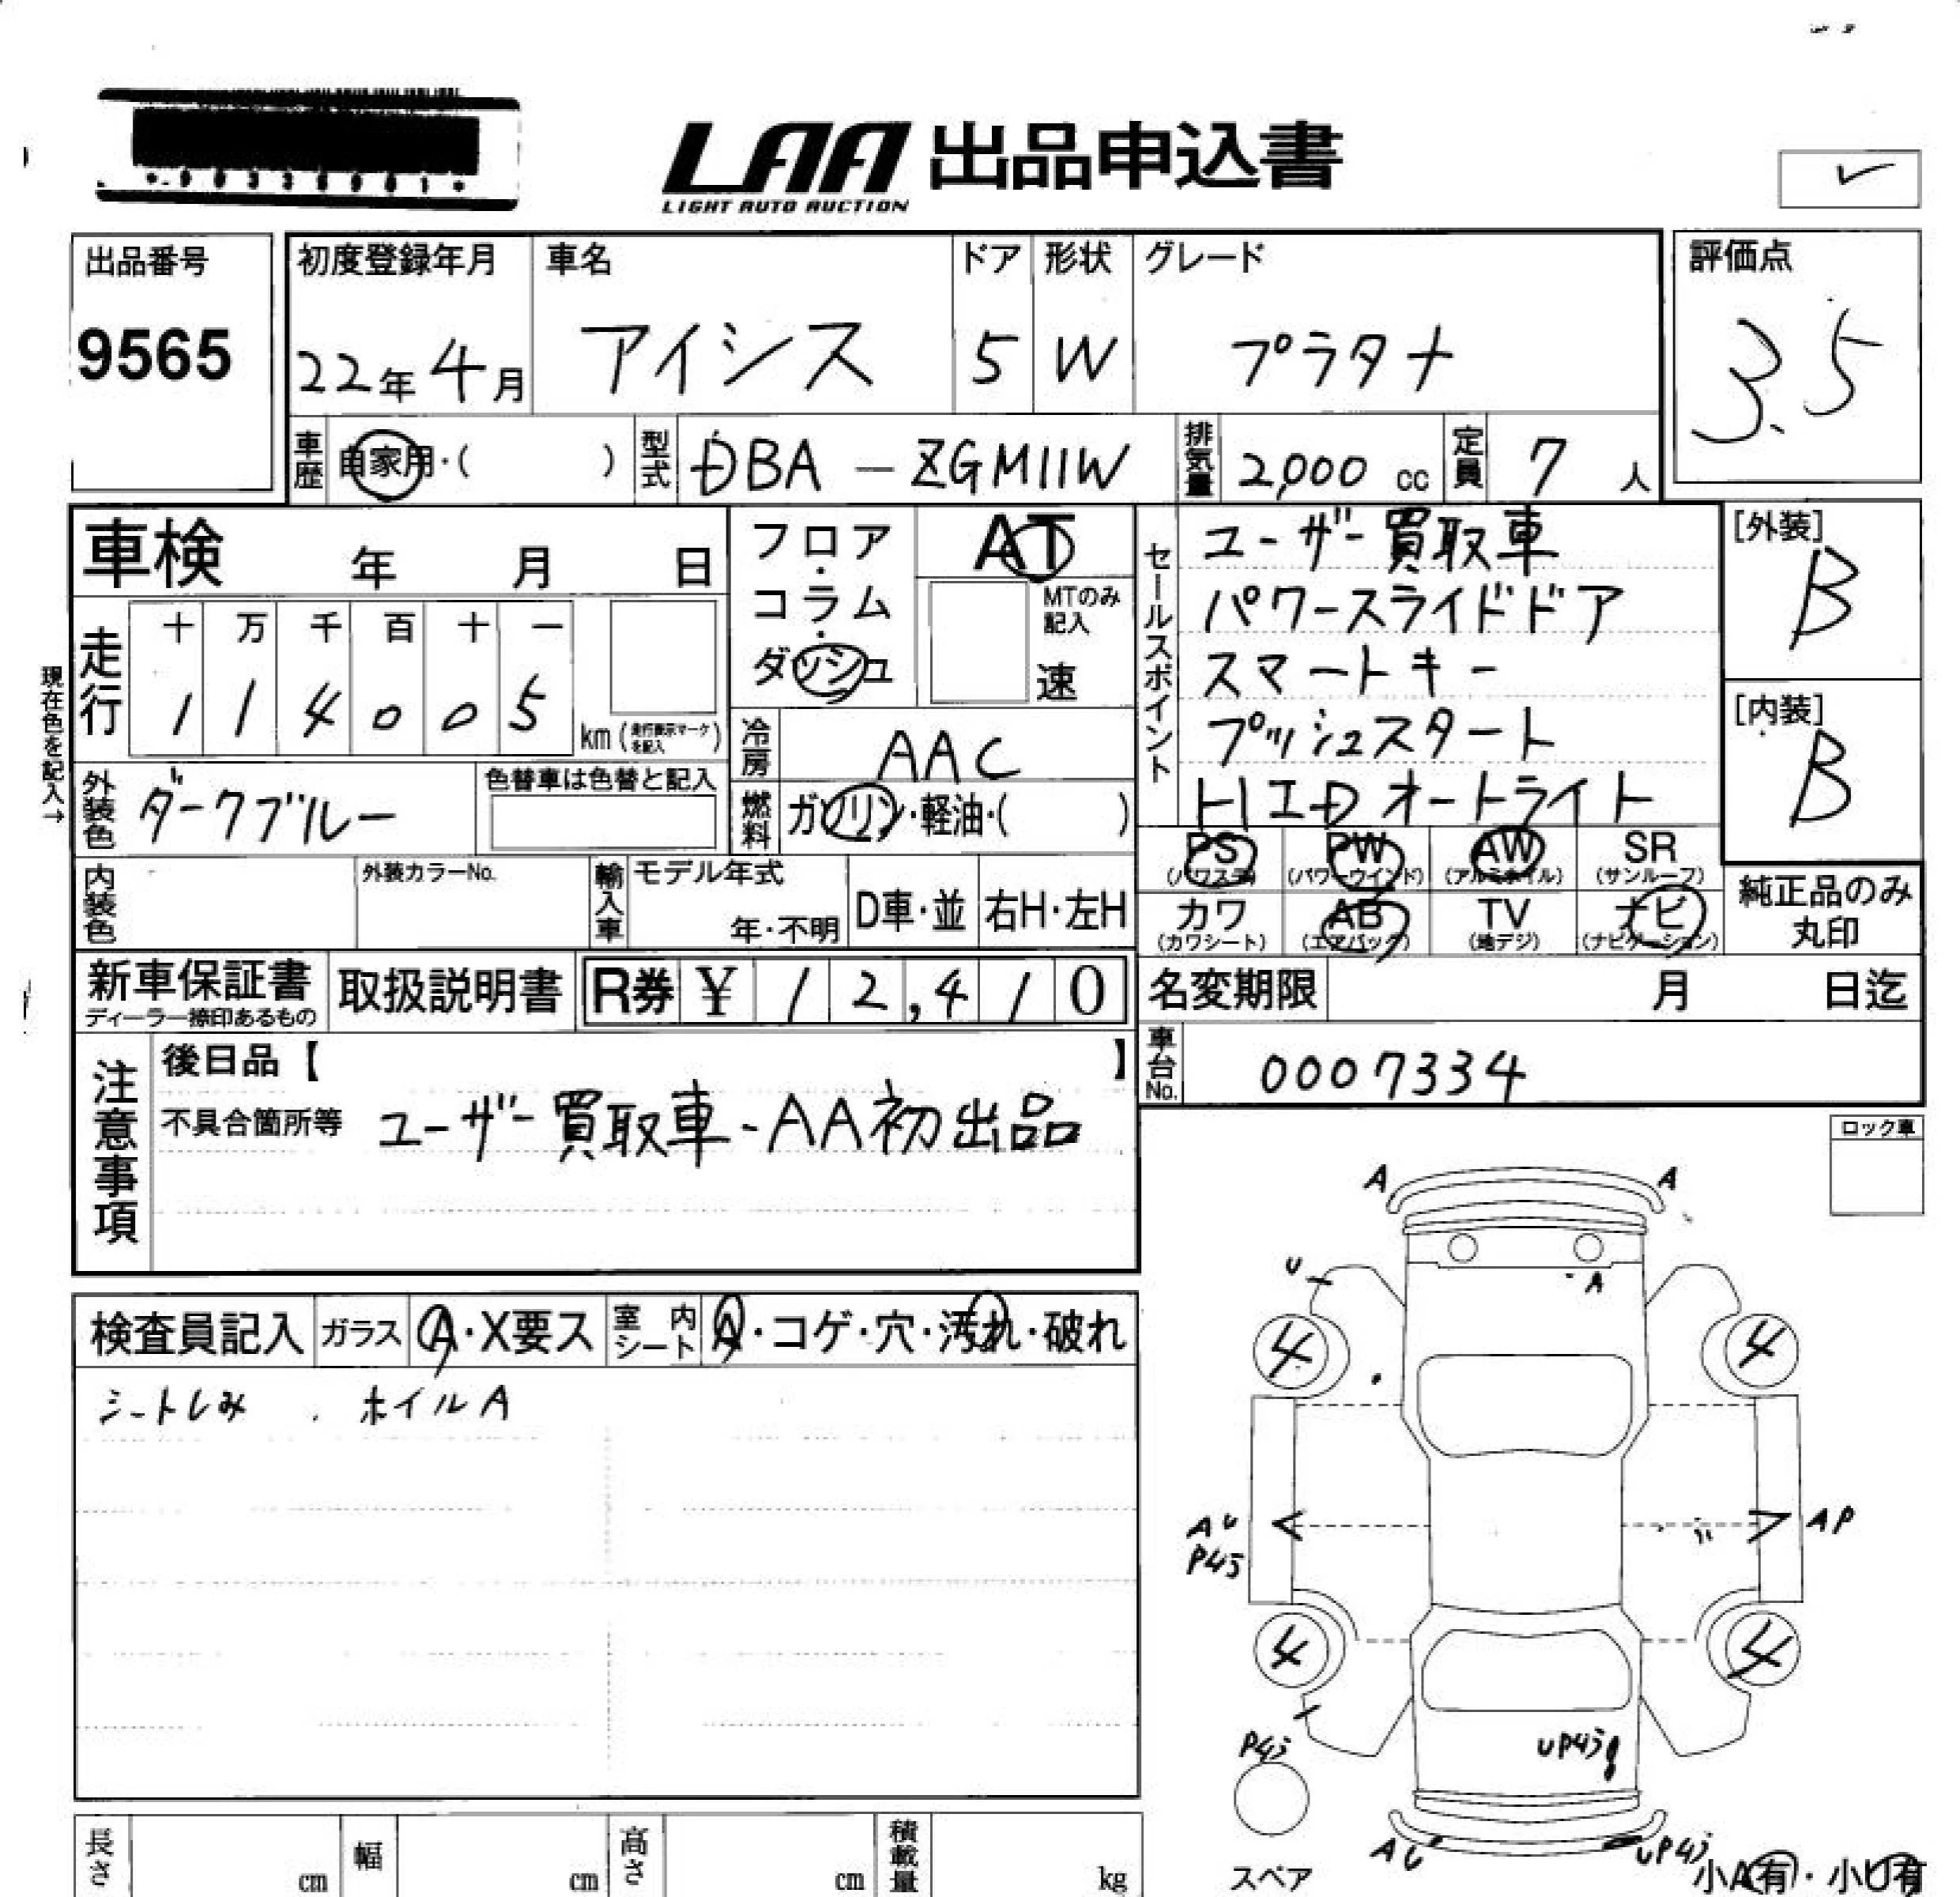 LAA 出品申込書
LIGHT AUTO AUCTION
出品番号
9565
初度登録年月 車名 ドア 形状 グレード
22年4月 アイシス 5 W プラタナ
評価点
3.5
車歴 自家用・( ) 型式 DBA-ZGM11W 排気量 2,000 cc 定員 7 人
車検 年 月 日
フロア・コラム・ダッシュ
AT
MTのみ記入
速
現在色を記入→
走行 十 万 千 百 十 一
1 1 4 0 0 5 km(走行表示マークを記入)
冷房 AAC
外装色 ダークブルー 色替車は色替と記入
燃料 ガソリン・軽油・( )
内装色 外装カラーNo. 輸入車 モデル年式 年・不明 D車・並 右H・左H
セールスポイント
ユーザー買取車
パワースライドドア
スマートキー
プッシュスタート
HIDオートライト
[外装]
B
[内装]
B
PS (パワステ) PW (パワーウインド) AW (アルミホイル) SR (サンルーフ)
カワ (カワシート) AB (エアバック) TV (地デジ) ナビ (ナビゲーション)
純正品のみ
丸印
新車保証書 ディーラー捺印あるもの 取扱説明書 R券 ¥ 12,410
名変期限 月 日迄
車台No. 0007334
注意事項
後日品【 】
不具合箇所等 ユーザー買取車-AA初出品
ロック車
検査員記入 ガラス A・X要ス 室内シート A・コゲ・穴・汚れ・破れ
シートしみ . ホイルA
A A
U A
4 4
AU AP
P4う
4 4
P4う UP4う
AU UP4う
スペア
小A有・小U有
長さ cm 幅 cm 高さ cm 積載量 kg